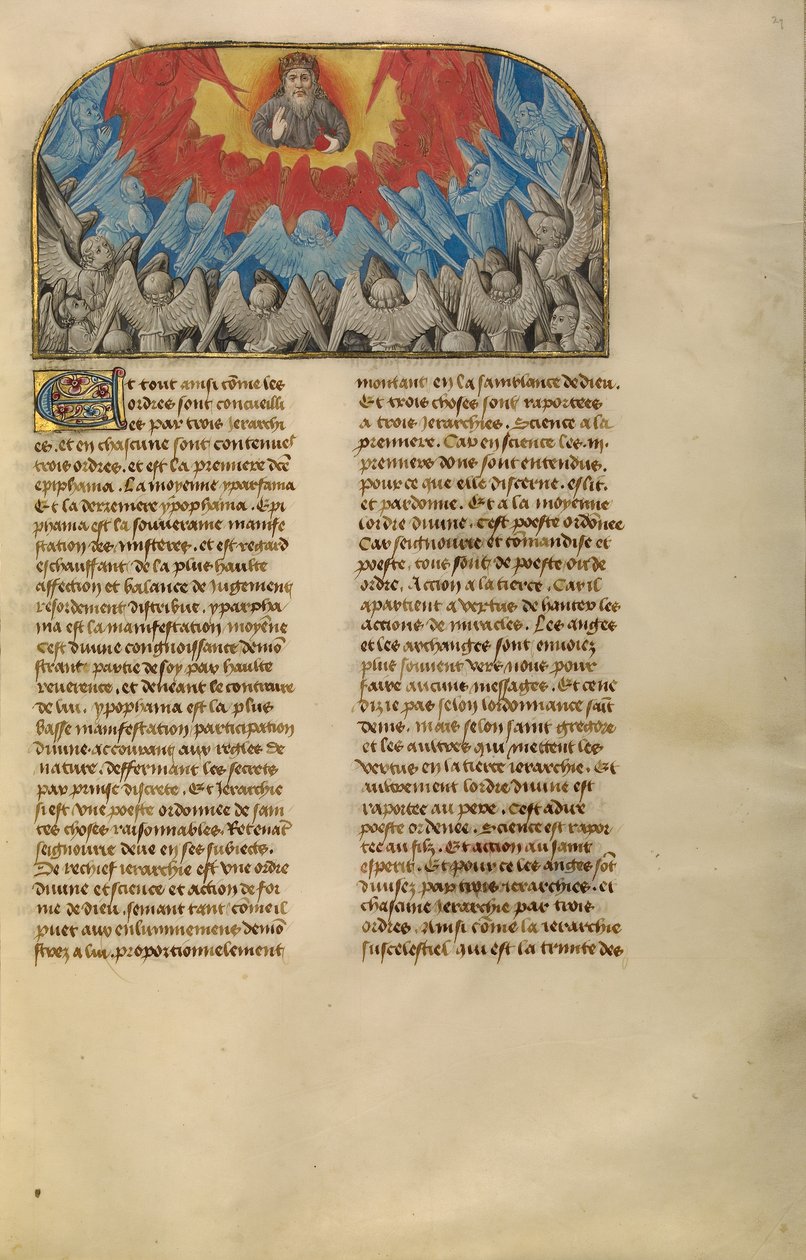 27
Et tout ainsi cõme les
ordres sont concueilli
es par trois Jerarchi
es. et en chascune sont contenues
trois ordres. et est la premiere dcẽ
epiphania. La moyenne yparfama
Et la derreniere ypophania. Epi
phania est la souueraine manife
station des misteres. et est regard
eschauffant de la plus haulte
affection et balance de Jugement
resordement distribue. yparpha
nia est la manifestation moyẽne
Cest diuine congnoissance demõ
strant partie de soy par haulte
reuerence. et deneant le contraire
de lui. ypophania est la plus
basse manifestation participation
diuine accourant aux regles de
nature. deffermant les secrets
par prinse discrete. Et Jerarchie
si est vne poeste ordonnee de sain
tes choses raisonnables. Retenãt
seignourie deue en ses subiects.
De rechief ierarchie est vne ordre
diuine et science et action de for
me de dieu. semant tant cõme il
puet aux enluminemens demõ
strez a lui. proporcionnelement
montant en la samblance de dieu.
Et trois choses sont raportees
a trois Jerarchies. Science a la
premiere. Car en science les .iii.
premiers dons sont entendus.
pour ce que elle discerne. eslit.
et pardonne. Et a la moyenne
lordre diuine. Cest poeste ordõnee
Car seignourie et cõmandise et
poeste. tous sont de poeste ou de
ordre. Action a la tierce. Car il
apartient a vertus de hanter les
actions de miracles. Les anges
et les archanges sont enuoiez
plus souuent vers nous pour
faire aucuns messages. Et ce ne
di ie pas selon lordonnance saīt
denis. mais selon saint gregore
et les aultres qui mettent les
vertus en la tierce ierarchie. Et
autrement lordre diuine est
raportee au pere. Cest a dire
poeste ordenee. Science est rapor
tee au filz. Et action au saint
esperit. Et pour ce les anges sõt
diuisez par trois ierarchies. et
chascune Jerarchie par trois
ordres. Ainsi cõme la ierarchie
suscelestiel qui est la trinite des